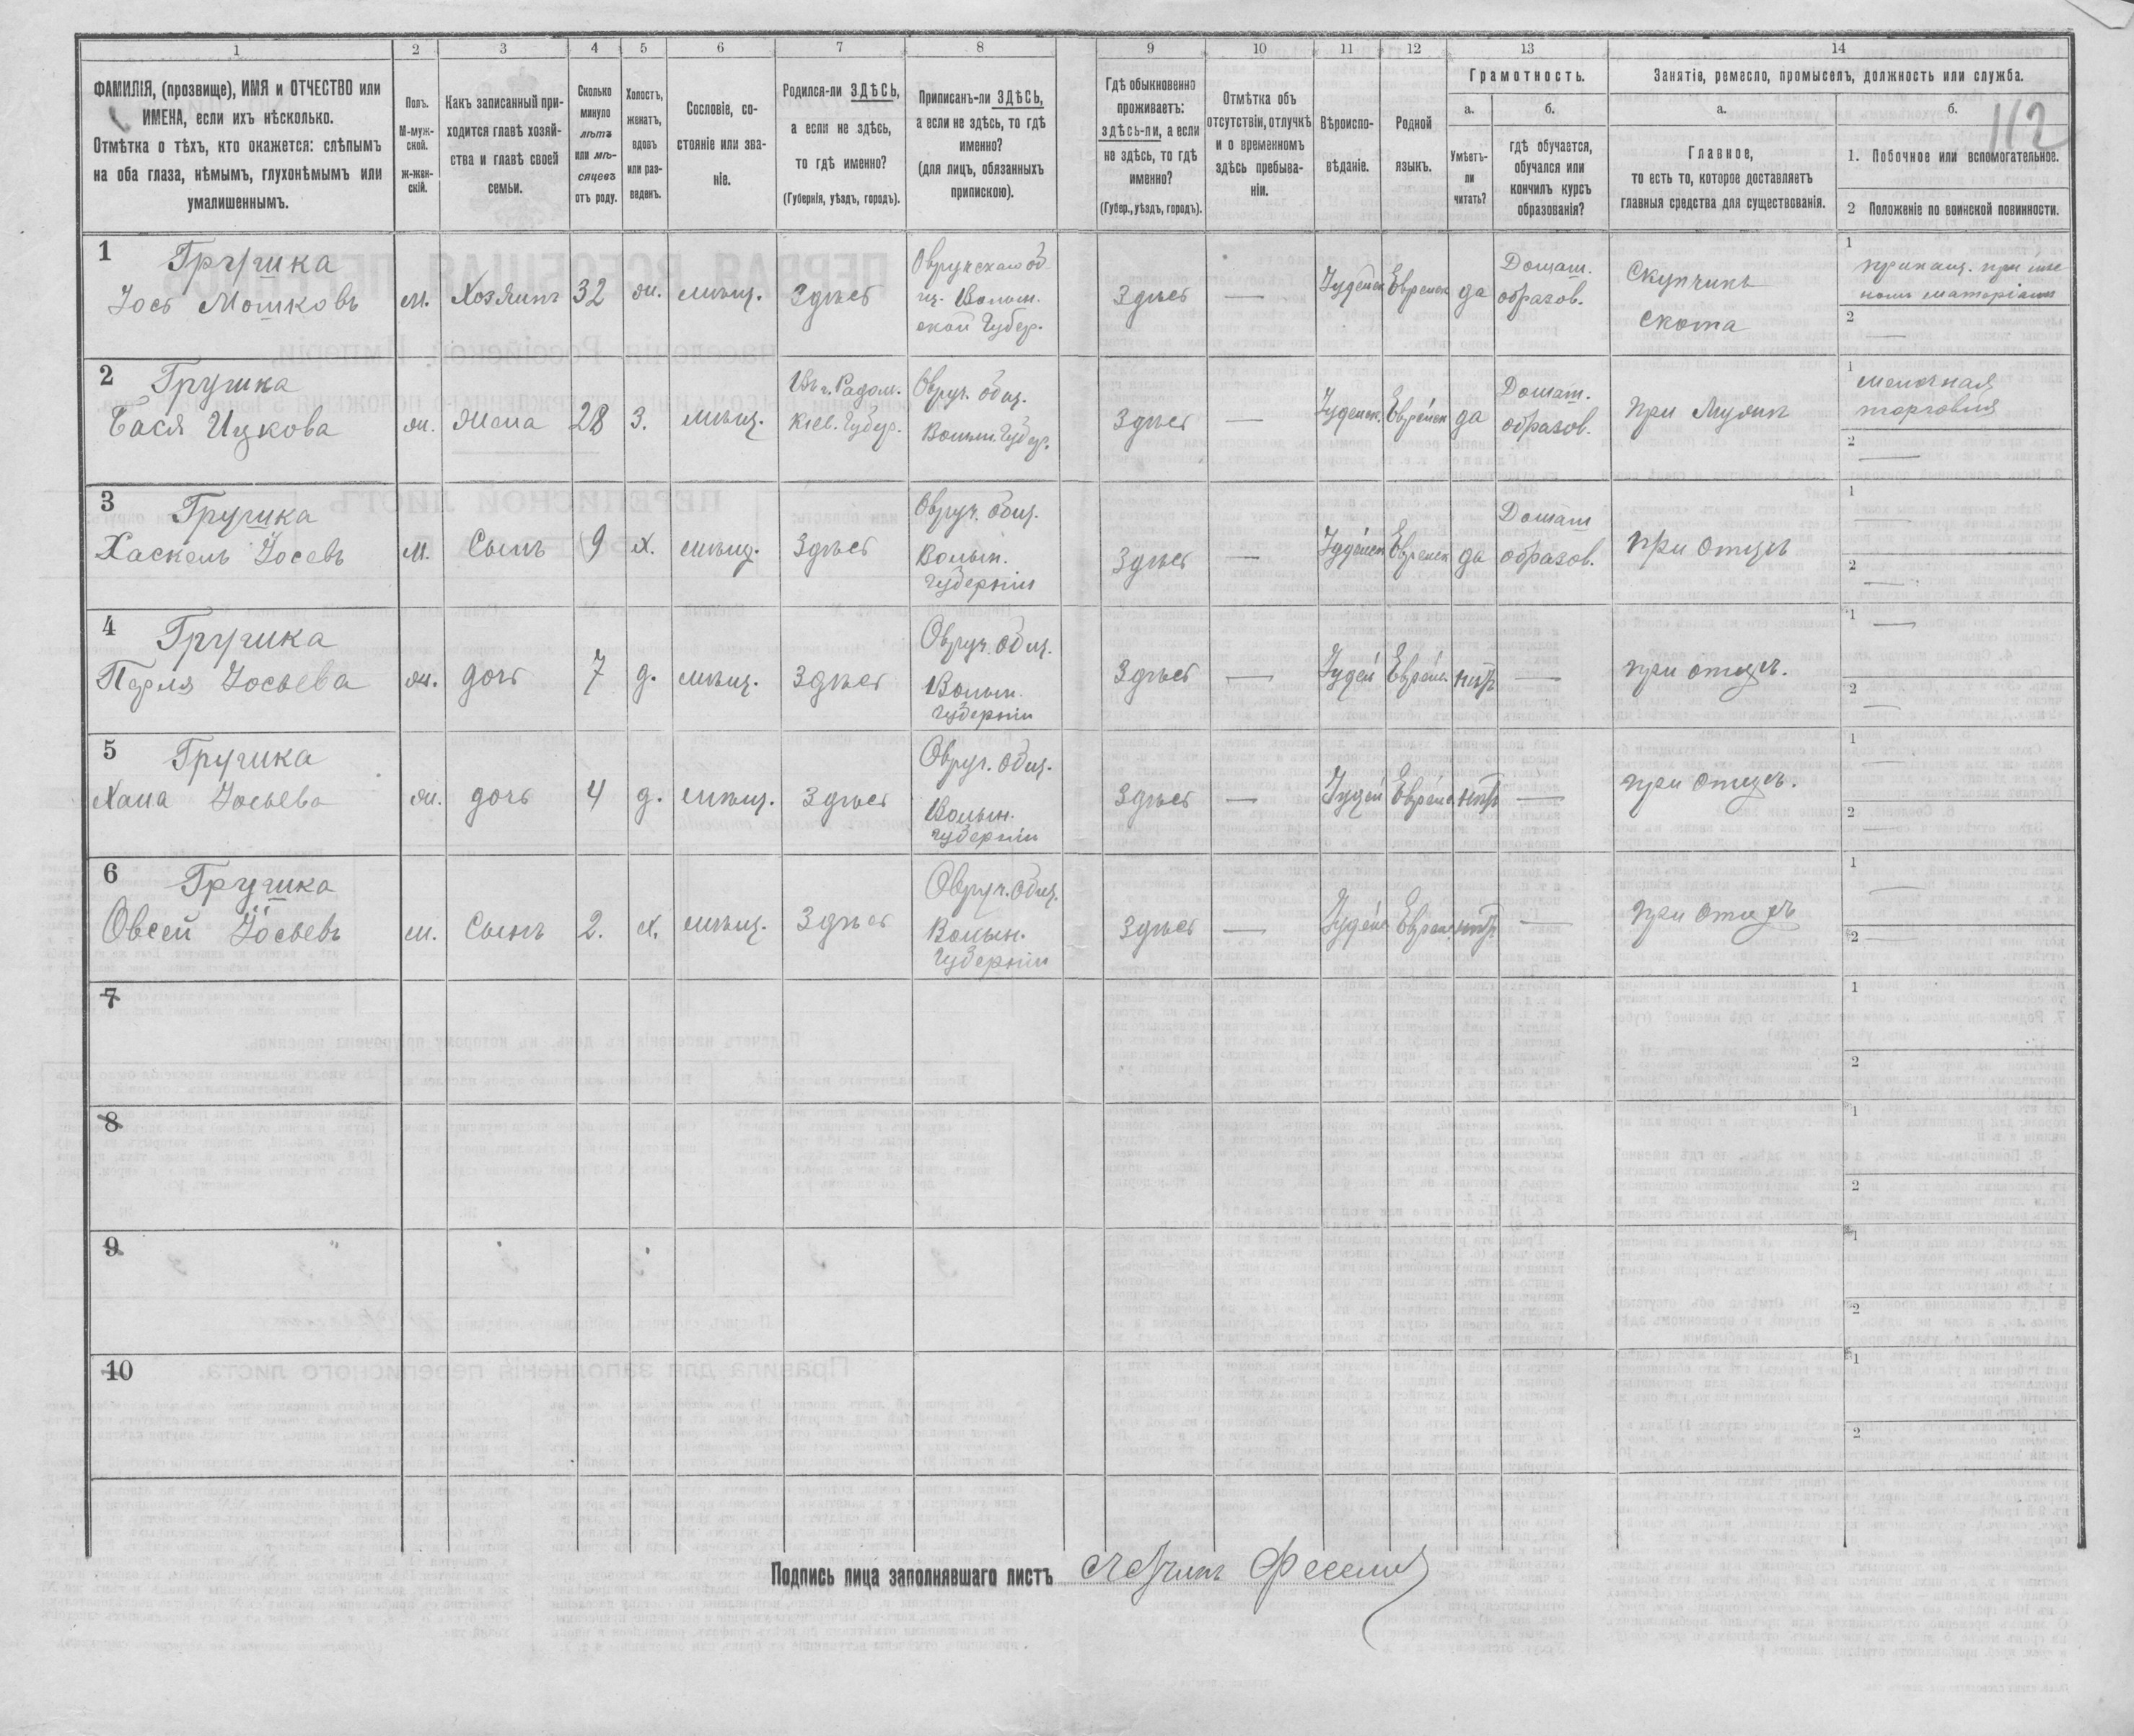 1 2 3 4 5 6 7 8 9 10 11 12 13 14
ФАМИЛІЯ, (прозвище), ИМЯ и ОТЧЕСТВО или
ИМЕНА, если ихъ нѣсколько.
Отмѣтка о тѣхъ, кто окажется: слѣпымъ
на оба глаза, нѣмымъ, глухонѣмымъ или
умалишеннымъ.
Полъ.
М-муж-
ской.
ж-жен-
скій.
Какъ записанный при-
ходится главѣ хозяй-
ства и главѣ своей
семьи.
Сколько
минуло
лѣтъ
или мѣ-
сяцевъ
отъ роду.
Холостъ,
женатъ,
вдовъ
или раз-
веденъ.
Сословіе, со-
стояніе или зва-
ніе.
Родился-ли ЗДѢСЬ,
а если не здѣсь,
то гдѣ именно?
(Губернія, уѣздъ, городъ).
Приписанъ-ли ЗДѢСЬ,
а если не здѣсь, то гдѣ
именно?
(для лицъ, обязанныхъ
припискою).
Гдѣ обыкновенно
проживаетъ:
ЗДѢСЬ-ли, а если
не здѣсь, то гдѣ
именно?
(Губер., уѣздъ, городъ).
Отмѣтка объ
отсутствіи, отлучкѣ
и о временномъ
здѣсь пребыва-
ніи.
Вѣроиспо-
вѣданіе.
Родной
языкъ.
Грамотность.
а.
Умѣетъ-
ли
читать?
б.
гдѣ обучается,
обучался или
кончилъ курсъ
образованія?
Занятіе, ремесло, промыселъ, должность или служба.
а.
Главное,
то есть то, которое доставляетъ
главныя средства для существованія.
б.
112
1. Побочное или вспомогательное.
2 Положеніе по воинской повинности.
1
Грушка
Іось Мошковъ
м.
Хозяинъ
32
ж.
мѣщ.
Здѣсь
Волын.
ской Губер.
Здѣсь
—
Іудейск
Еврейск
да
Домаш.
образов.
Скупчикъ
скота
1
2
—
2
Грушка
Бася Ицкова
ж.
Жена
28
З.
мѣщ.
Въ г. Радом.
Кіев. Губер.
Овруч. общ.
Волын. Губер.
Здѣсь
—
Іудейск.
Еврейск
да
Домаш.
образов.
при Мужѣ
1 мелочная
торговля
2
—
3
Грушка
Хаскель Іосевъ
м.
Сынъ
9
х.
мѣщ.
Здѣсь
Овруч. общ.
Волын.
Губерніи
Здѣсь
—
Іудейск
Еврейск
да
Домаш
образов.
при отцѣ
1
—
2
—
4
Грушка
Перля Іосьева
ж.
дочь
7
д.
мѣщ.
Здѣсь
Овруч. общ.
Волын.
Губерніи
Здѣсь
—
Іудей
Еврейс.
нѣтъ
—
при отцѣ.
1
—
2
—
5
Грушка
Хана Іосьева
ж.
дочь
4
д.
мѣщ.
Здѣсь
Овруч. общ.
Волын.
Губерніи
Здѣсь
—
Іудей
Еврейс.
нѣтъ
—
при отцѣ.
1
—
2
—
6
Грушка
Овсей Іосьевъ
м.
Сынъ
2.
х.
мѣщ.
Здѣсь
Овруч. общ.
Волын.
Губерніи
Здѣсь
—
Іудейс
Еврейс.
нѣтъ
—
при отцѣ
1
—
2
—
7
1
2
8
1
2
9
1
2
10
1
2
Подпись лица заполнявшаго листъ